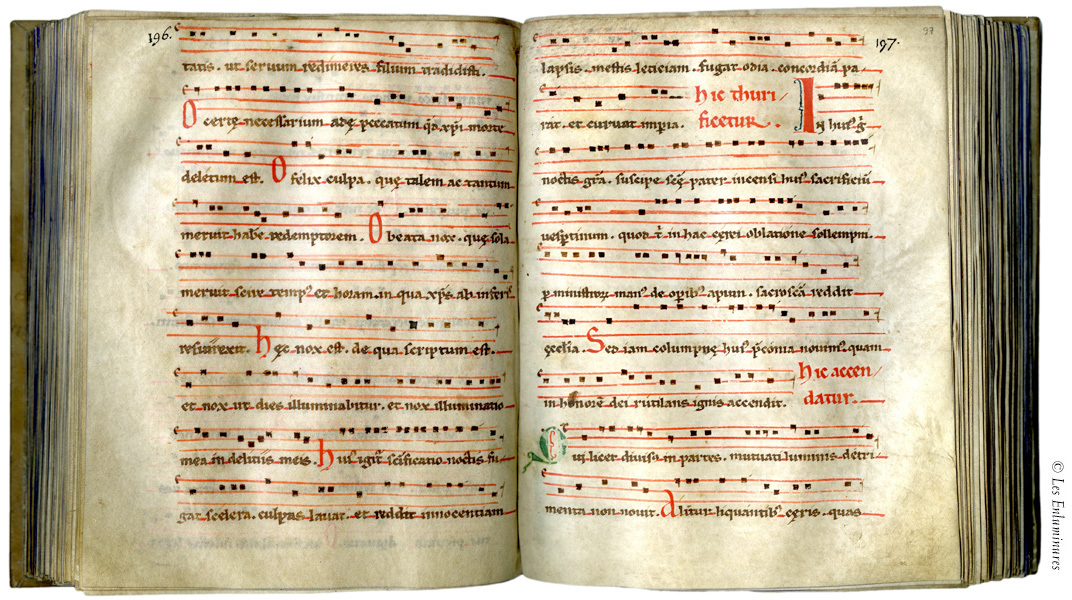 196.
tatis. ut seruum redimeres filium tradidisti.
O certę necessarium adę peccatum. qđ xp̄i morte
deletum est. O felix culpa. quę talem ac tantum
meruit habē redemptorem. O beata nox. quę sola
meruit scire temp᾿ et horam. in qua xp̄s ab inferis
resurrexit. hęc nox est. de qua scriptum est.
et nox ut dies illuminabitur. et nox illuminatio
mea in delitiis meis. hui᾿ igit̄ sc̄ificatio noctis fu
gat scelera. culpas lauat. et reddit innocentiam
97
197.
lapsis. mestis leticiam. fugat odia. concordiā pa
rat. et curuat imp̄ia. hic thuri
ficetur. In hui᾿ g̊
noctis gr̄a. suscipe sc̄ę pater incensi hui᾿ sacrificiū
uesp̄tinum. quod t̄ in hac cęrei oblatione sollempni.
p̱ ministror̄ man᾿ de op̱ib᾿ apum. sacrosc̄a reddit
ęcclia. Sed iam columpnę hui᾿ p̄conia nouim᾿ quam
in honore dei rutilans ignis accendit. hic accen
datur.
Qui licet diuisus in partes. mutuati luminis detri
menta non nouit. Alitur liquantib᾿ cęris. quas
© Les Enluminures